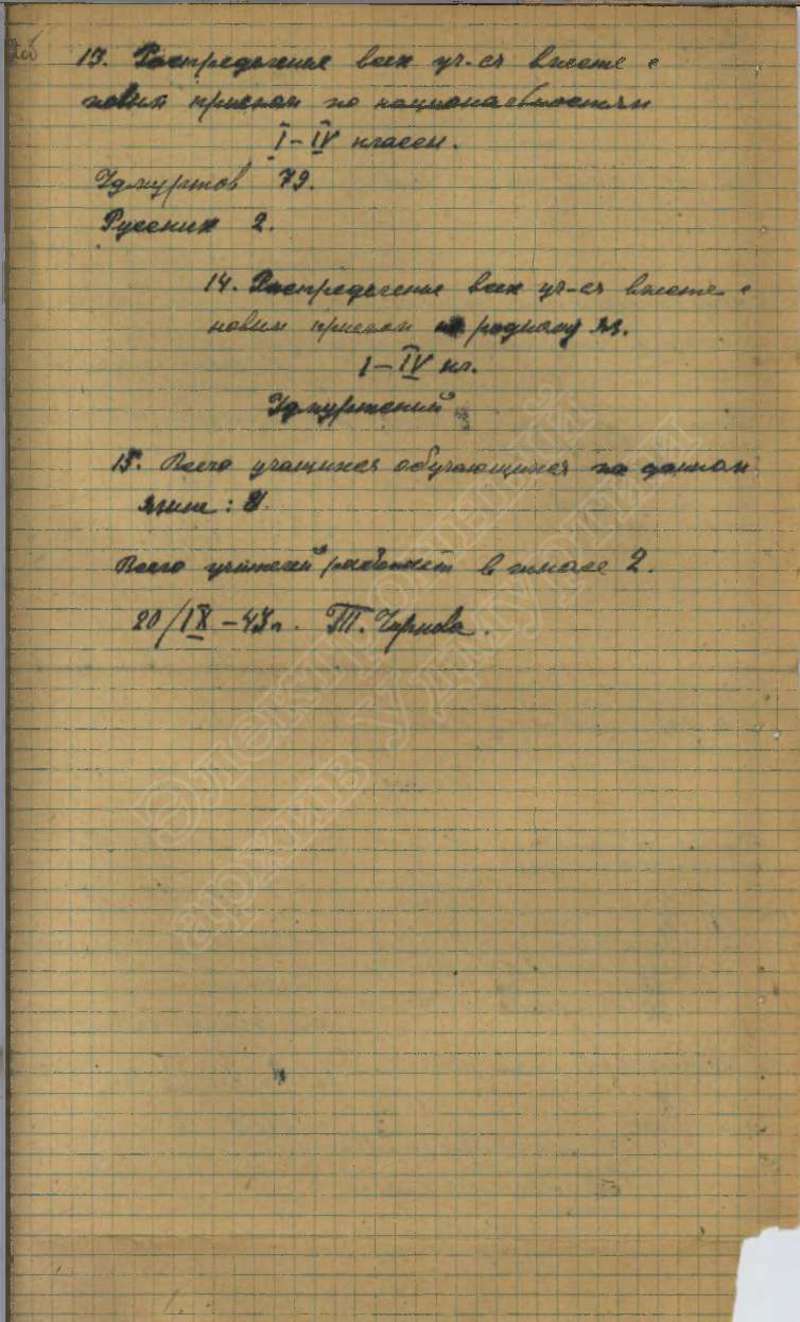 13. Распределение всех уч-ся вместе с
новым приемом по национальностям
I – IV классы.
Удмуртов 79.
Русских 2.
14. Распределение всех уч-ся вместе с
новым приемом родному яз.
I – IV кл.
Удмуртский
15. Всего учащихся обучающихся на данном
языке:
Всего учителей работает в школе 2.
20/IX – 43 г. Т. Чернова.
Электронный
архив Удмуртии